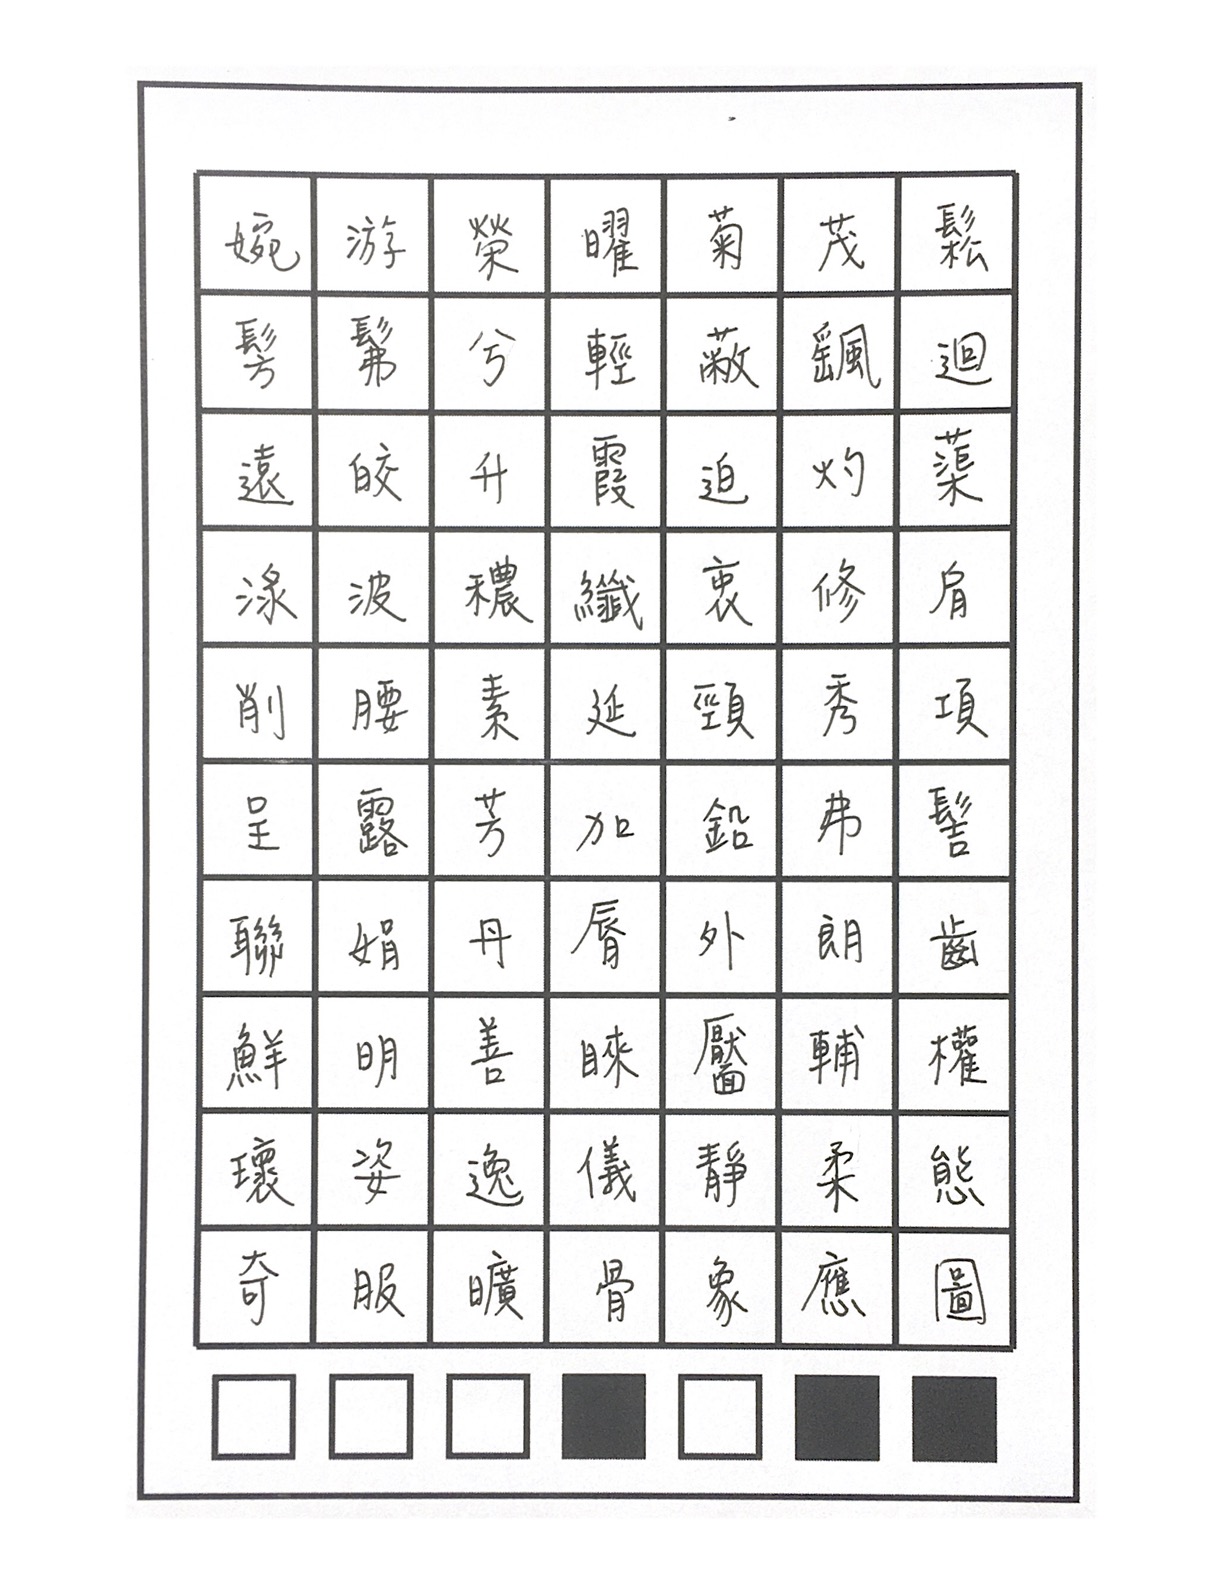 婉游榮曜菊茂鬆
髣髴兮輕蔽飖迴
遠皎升霞迫灼蕖
淥波穠纖衷修肩
削腰素延頸秀項
呈露芳加鉛弗髻
聯娟丹脣外朗齒
鮮明善睞靨輔權
瓌姿逸儀靜柔態
奇服曠骨象應圖